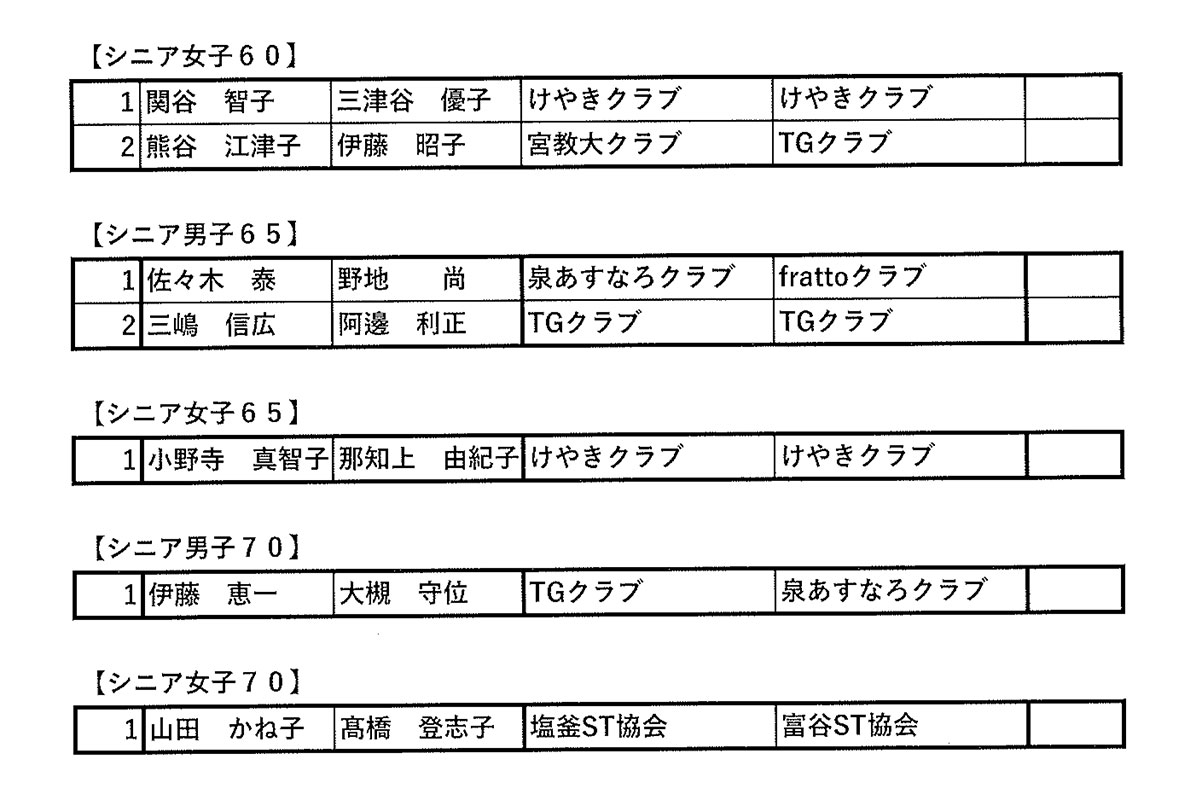 【シニア女子６０】
1 関谷　智子 三津谷　優子 けやきクラブ けやきクラブ
2 熊谷　江津子 伊藤　昭子 宮教大クラブ TGクラブ
【シニア男子６５】
1 佐々木　泰 野地　　尚 泉あすなろクラブ frattoクラブ
2 三嶋　信広 阿邊　利正 TGクラブ TGクラブ
【シニア女子６５】
1 小野寺　真智子 那知上　由紀子 けやきクラブ けやきクラブ
【シニア男子７０】
1 伊藤　恵一 大槻　守位 TGクラブ 泉あすなろクラブ
【シニア女子７０】
1 山田　かね子 髙橋　登志子 塩釜ST協会 富谷ST協会